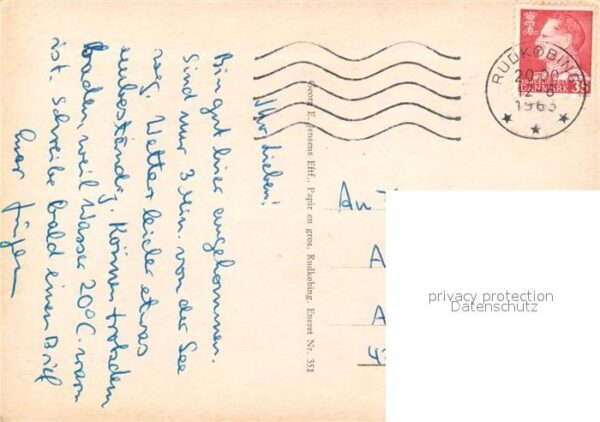 Ihr Lieben!
Bin gut hier angekommen.
Sind nur 3 Min. von der See
weg. Wetter leider etwas
unbeständig. Können trotzdem
baden, weil Wasser 20°C. warm
ist. Schreibe bald einen Brief
Euer Jürgen
Georg E. Jensens Eftf., Papir en gros, Rudkøbing. Eneret Nr. 351
RUDKØBING
20-00
12-8
1963
DANMARK 35
An
A
A
privacy protection
Datenschutz